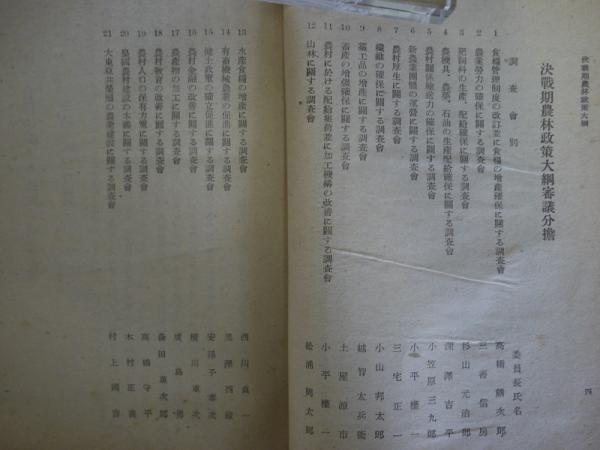 決戰期農林政策大綱
四
決戰期農林政策大綱審議分擔
調査會別
委員長氏名
1 食糧管理制度の改訂並に食糧の增産確保に關する調査會 高橋
2 農業勞力の確保に關する調査會 三善信房
3 肥飼料の生産、配給確保に關する調査會 杉山元治郎
4 農機具、農藥、石油の生産配給確保に關する調査會 深澤吉平
5 農村關係輸送力の確保に關する調査會 小笠原三九郎
6 新農業團體の運營に關する調査會 小平權一
7 農村厚生に關する調査會 三宅正一
8 纖維の確保に關する調査會 小山邦太郎
9 藁工品の增産に關する調査會 越智太兵衞
10 畜産の增强確保に關する調査會 土屋源市
11 農村に於ける配給集荷並に加工機構の改善に關する調査會 小平權一
12 山林に關する調査會 松浦周太郎
13 水産食糧の增産に關する調査會 西川貞一
14 有畜機械農業の保進に關する調査會 黑澤酉藏
15 健土政策の確立促進に關する調査會 安孫子孝次
16 農村金融の改善に關する調査會 横川重次
17 農産物の加工に關する調査會
18 農村教育の改善に關する調査會
19 農村人口の保有方策に關する調査會 高橋守平
20 皇國農村建設の本義に關する調査會 木村正義
21 大東亞共榮圈の農業建設に關する調査會 村上國吉